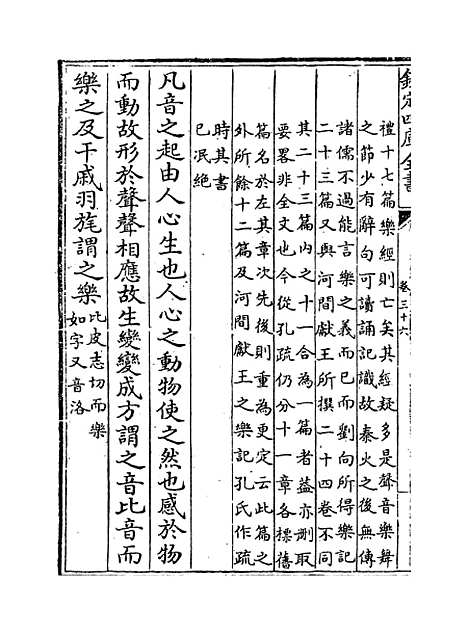 欽定四庫全書
卷三十六
禮十七篇樂經則亡矣其經疑多是聲音樂舞
之節少有辭句可讀誦記識故秦火之後無傳
諸儒不過能言樂之義而已而劉向所得樂記
二十三篇又與河間獻王所撰二十四卷不同
其二十三篇內之十一合為一篇者蓋亦刪取
要畧非全文也今從孔疏仍分十一章各標舊
篇名於左其章次先後則重為更定云此篇之
外所餘十二篇及河間獻王之樂記孔氏作疏
時其書
已泯絶
凡音之起由人心生也人心之動物使之然也感於物
而動故形於聲聲相應故生變變成方謂之音比音而
樂之及干戚羽旄謂之樂
比皮志切而樂
如字又音洛